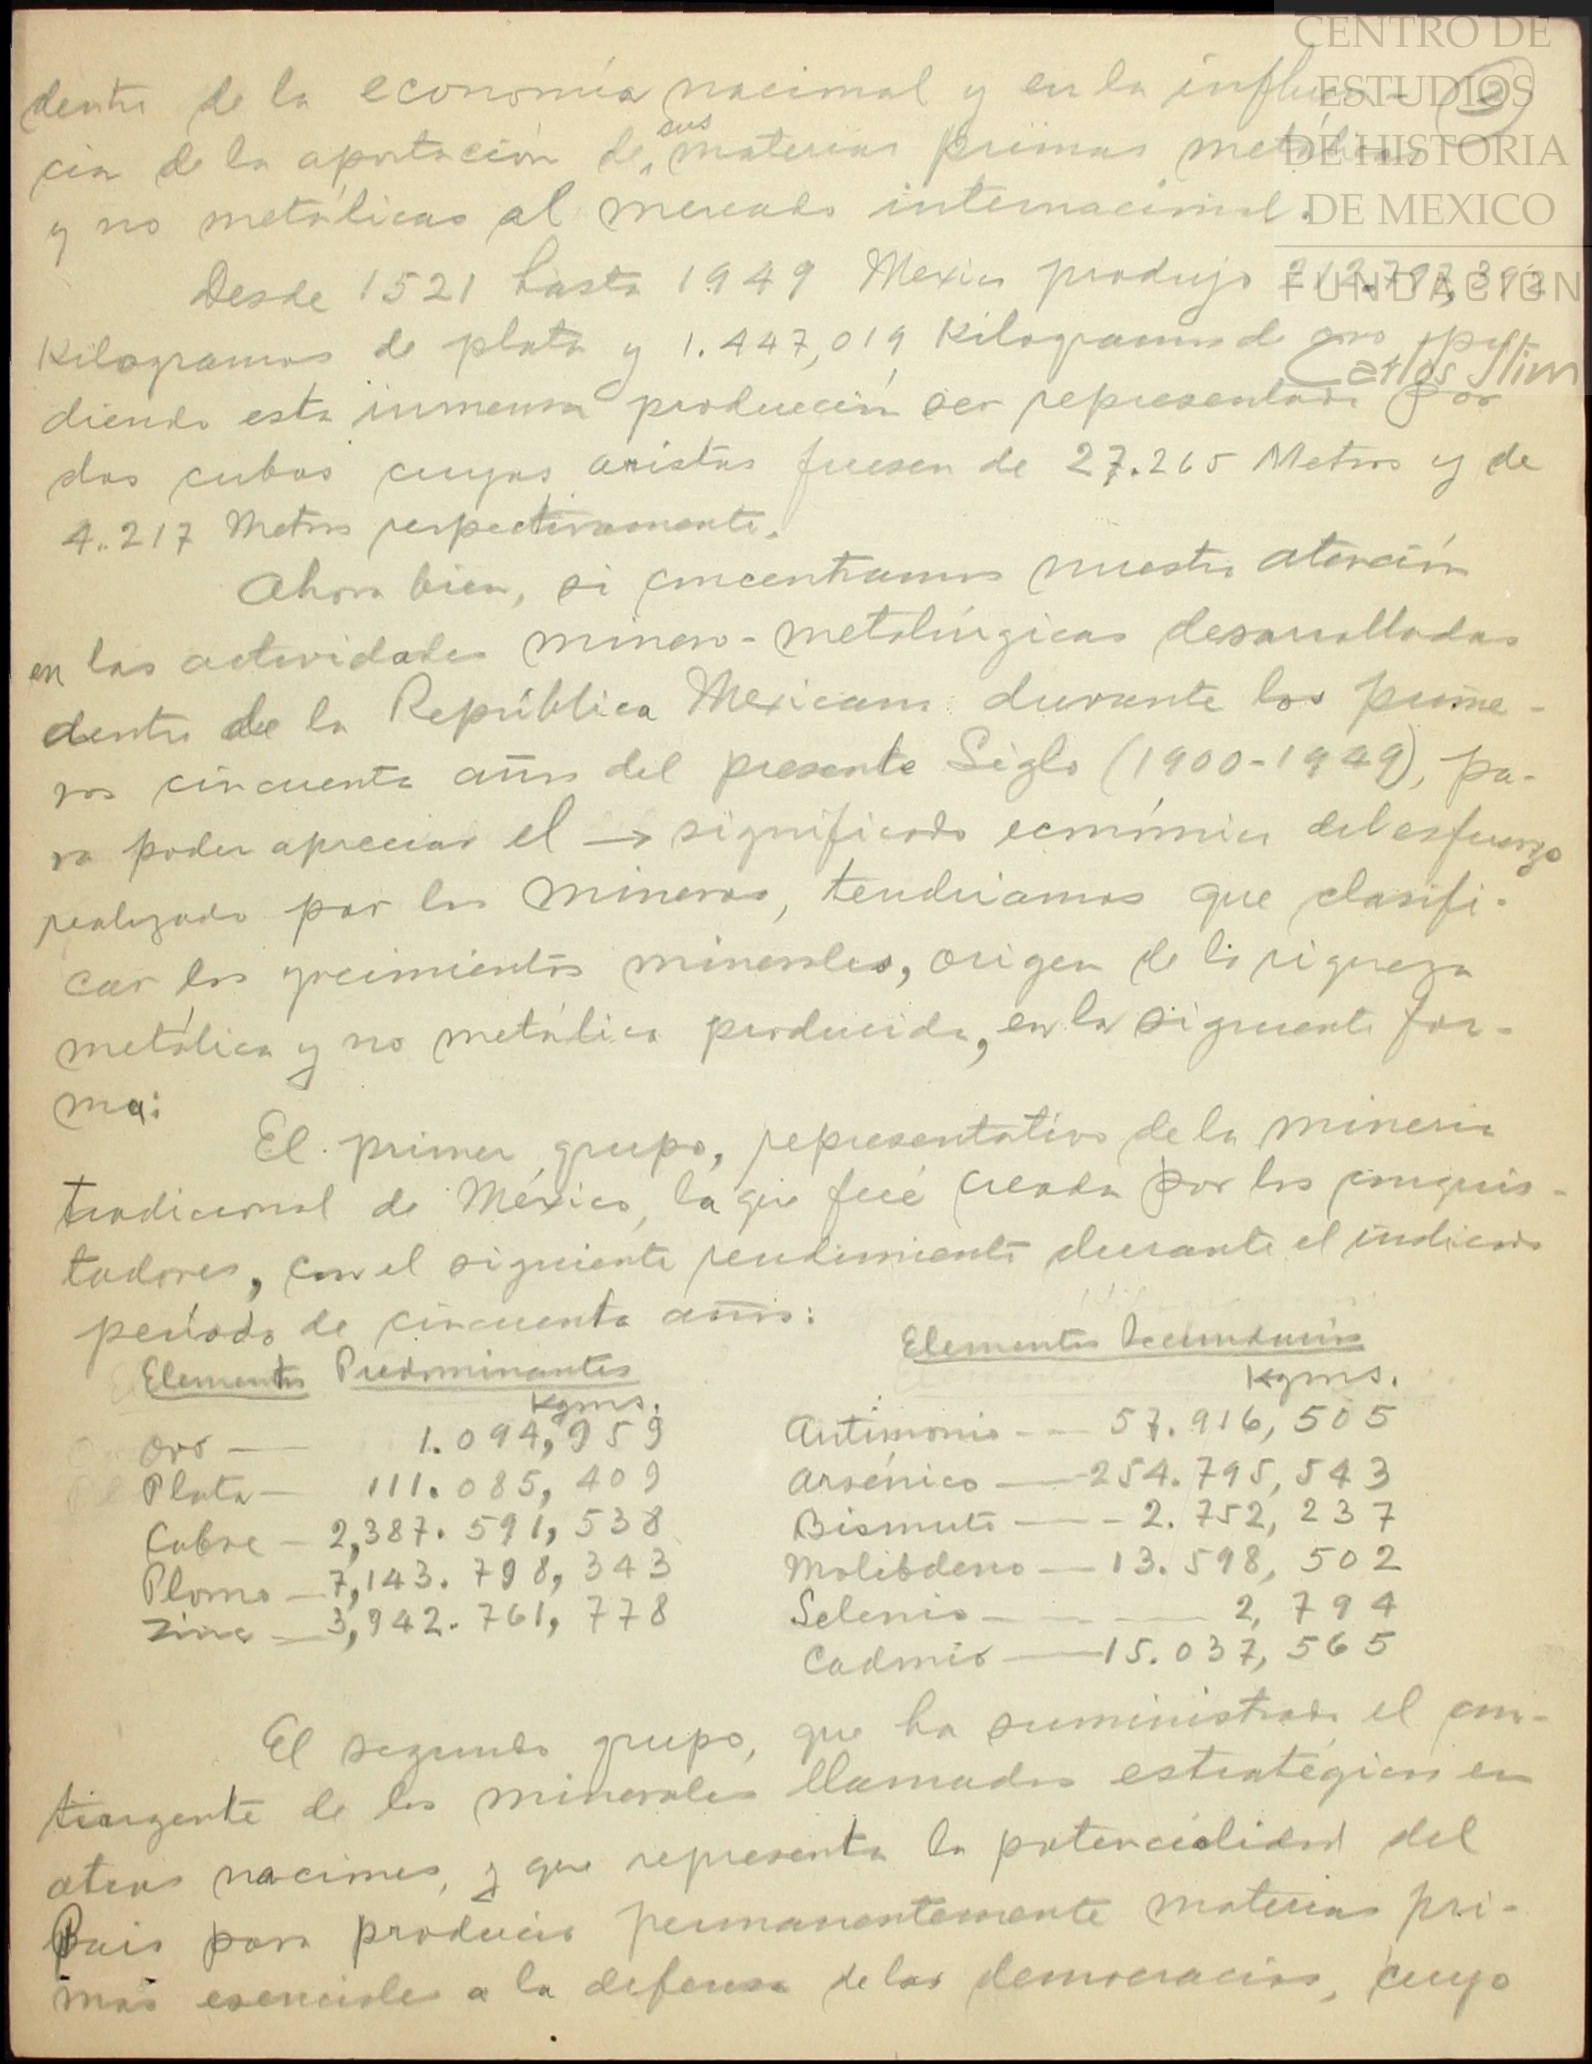 CENTRO DE
ESTUDIOS
DE HISTORIA
DE MEXICO
FUNDACIÓN
Carlos Slim
dentro de la economía nacional y en la influen-
cia de la aportación de sus materias primas metálicas
y no metálicas al mercado internacional.
Desde 1521 hasta 1949 Mexico produjo
Kilogramos de plata y 1.447,019 Kilogramos de oro, pu-
diendo esta inmensa producción ser representada por
dos cubos cuyas aristas fuesen de 27.265 Metros y de
4.217 Metros respectivamente.
Ahora bien, si concentramos nuestra atención
en las actividades minero-metalúrgicas desarrolladas
dentro de la República Mexicana durante los prime-
ros cincuenta años del presente Siglo (1900-1949), pa-
ra poder apreciar el → significado económico del esfuerzo
realizado por los mineros, tendriamos que clasifi-
car los yacimientos minerales, origen de la riqueza
metálica y no metálica producida, en la siguiente for-
ma:
El primer grupo, representativo de la mineria
tradicional de México, la que fué creada por los conquis-
tadores, con el siguiente rendimiento durante el indicado
período de cincuenta años:
Elementos Predominantes
Kgms.
Oro — 1.094,959
Plata — 111.085,409
Cobre — 2,387.591,538
Plomo — 7,143.798,343
Zinc — 3,942.761,778
Elementos Secundarios
Kgms.
Antimonio — 57.916,505
Arsénico — 254.795,543
Bismuto — 2.752,237
Molibdeno — 13.598,502
Selenio — 2,794
Cadmio — 15.037,565
El segundo grupo, que ha suministrado el con-
tingente de los minerales llamados estratégicos en
otras naciones, y que representa la potencialidad del
Pais para producir permanentemente materias pri-
mas esenciales a la defensa de las democracias, cuyo